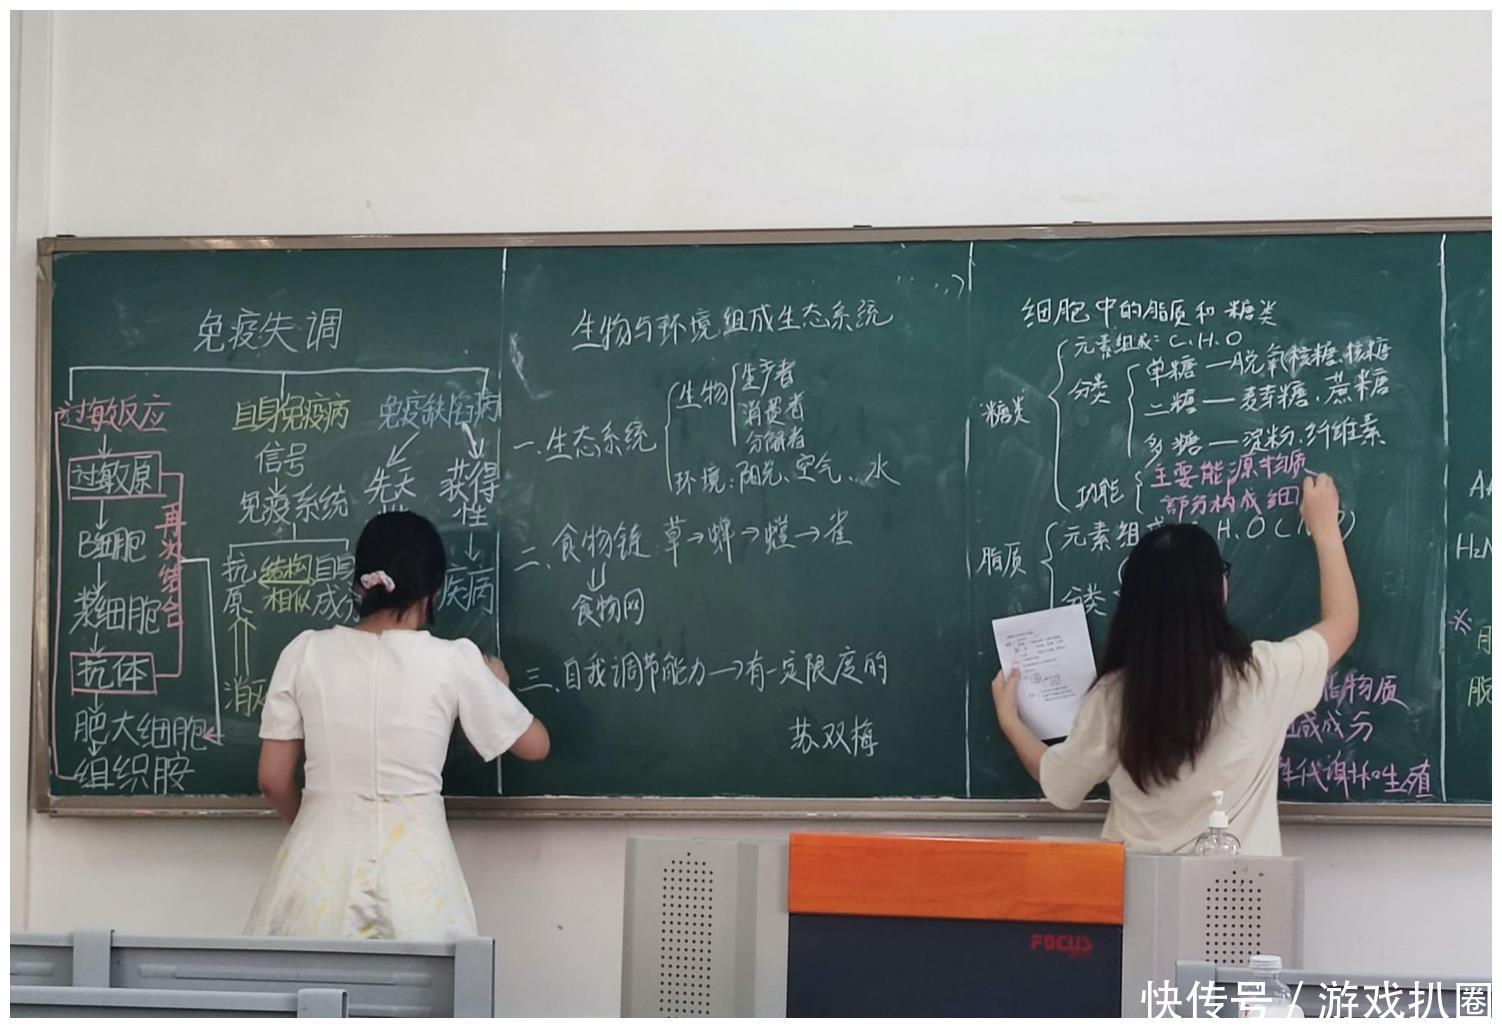 免疫失调
过敏反应
自身免疫病
免疫缺陷病
过敏原
B细胞
浆细胞
抗体
肥大细胞
组织胺
再次结合
信号
免疫系统
抗原
结构相似
自身
成分
先天
获得性
疾病
生物与环境组成生态系统
一.生态系统
生物
生产者
消费者
分解者
环境:阳光、空气、水
二.食物链:草→蝉→螳→雀
食物网
三.自我调节能力→有一定限度的
苏双梅
细胞中的脂质和糖类
糖类
元素组成:C.H.O
分类
单糖—脱氧核糖.核糖
二糖—麦芽糖.蔗糖
多糖—淀粉.纤维素
功能
主要能源物质
部分构成细
脂质
元素组成
H.O(
分类
脂物质
成分
代谢和生殖
H₂N
FOCUS
快传号/游戏扒圈